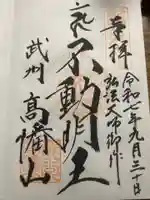 奉拝
令和七年九月三十日
弘法大師御作
不動明王
武州
高幡山